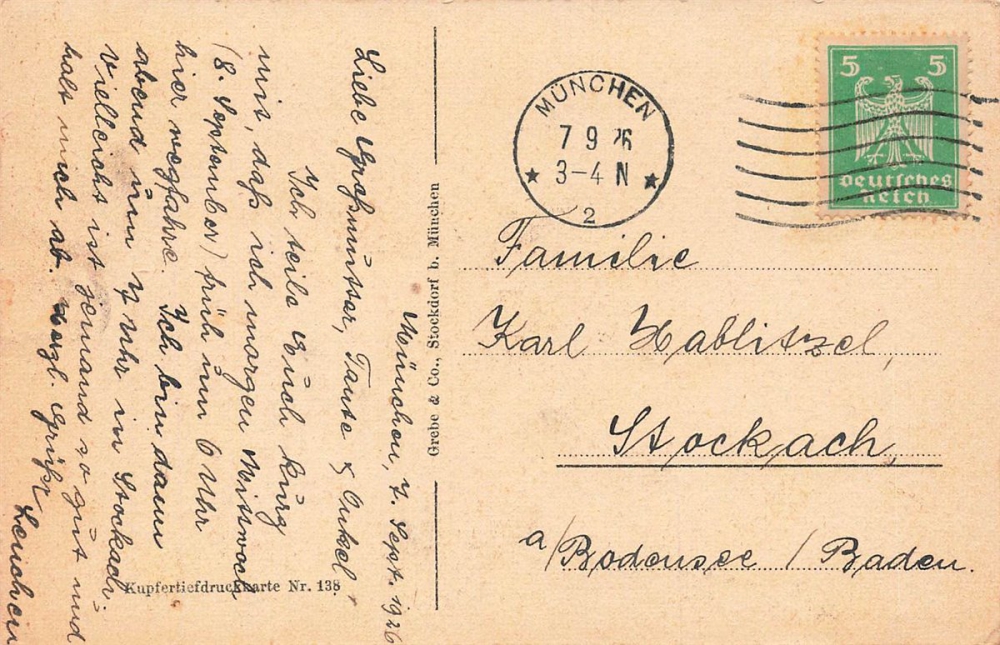 München, 7. Sept. 1926
Liebe Großmutter, Tante & Onkel,
Ich teile Euch kurz
mit, daß ich morgen Mittwoch
(8. September) früh um 6 Uhr
hier wegfahre. Ich bin dann
abend um 7 Uhr in Stockach.
Vielleicht ist jemand so gut und
holt mich ab. Herzl. Grüße
Lenchen
Kupfertiefdruckkarte Nr. 138
Grebe & Co., Stockdorf b. München
MÜNCHEN
7 9 26
3-4 N
2
5 5
Deutsches
Reich
Familie
Karl Hablitzel,
Stockach,
a/Bodensee / Baden.